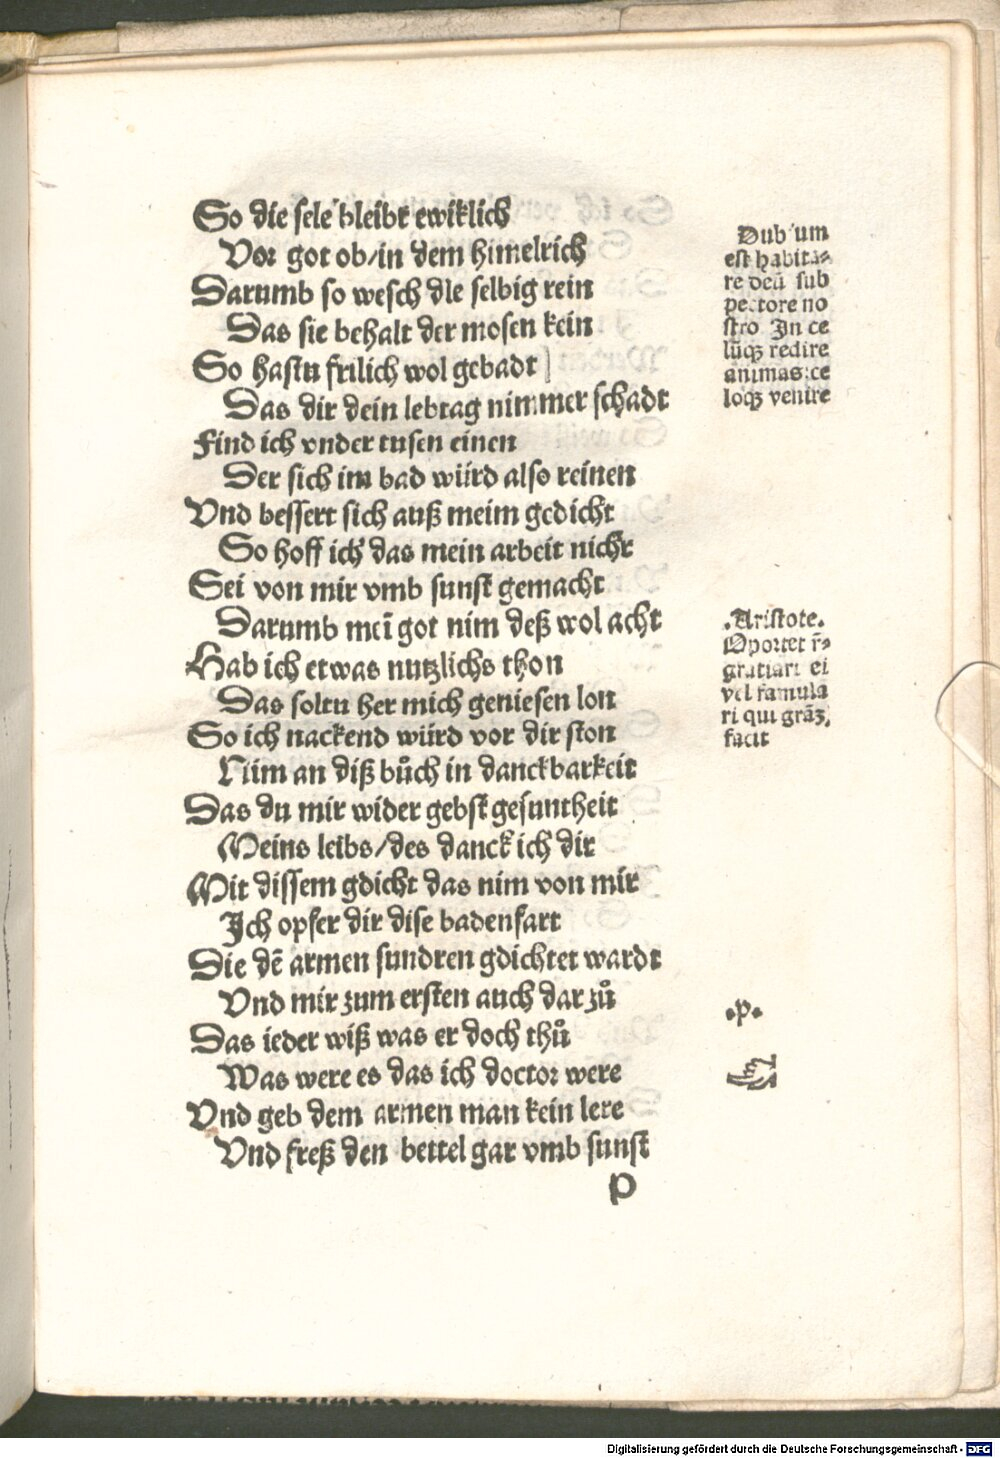 So die sele bleibt ewiklich
Vor got ob/in dem himelrich
Darumb so wesch die selbig rein
Das sie behalt der mosen kein
So hastu frilich wol gebadt
Das dir dein lebtag nimmer schadt
Find ich vnder tusen einen
Der sich im bad würd also reinen
Vnd bessert sich auß meim gedicht
So hoff ich das mein arbeit nicht
Sei von mir vmb sunst gemacht
Darumb meī got nim deß wol acht
Hab ich etwas nutzlichs thon
Das soltu her mich geniesen lon
So ich nackend würd vor dir ston
Niim an diß bůch in danckbarkeit
Das du mir wider gebst gesuntheit
Meins leibs/des danck ich dir
Mit dissem gdicht das nim von mir
Ich opfer dir dise badenfart
Die dē armen sundren gdichtet wardt
Vnd mir zum ersten auch dar zů
Das ieder wiß was er doch thů
Was were es das ich doctor were
Vnd geb dem armen man kein lere
Vnd freß den bettel gar vmb sunst
p
Dub um
est habita⸗
re deū sub
pectore no
stro In ce
lūqꝫ redire
animas:ce
loqꝫ venire
.Aristote.
Oportet r̄⸗
gratiari ei
vel famula
ri qui grāꝫ.
facit
•p•
Digitalisierung gefördert durch die Deutsche Forschungsgemeinschaft - DFG